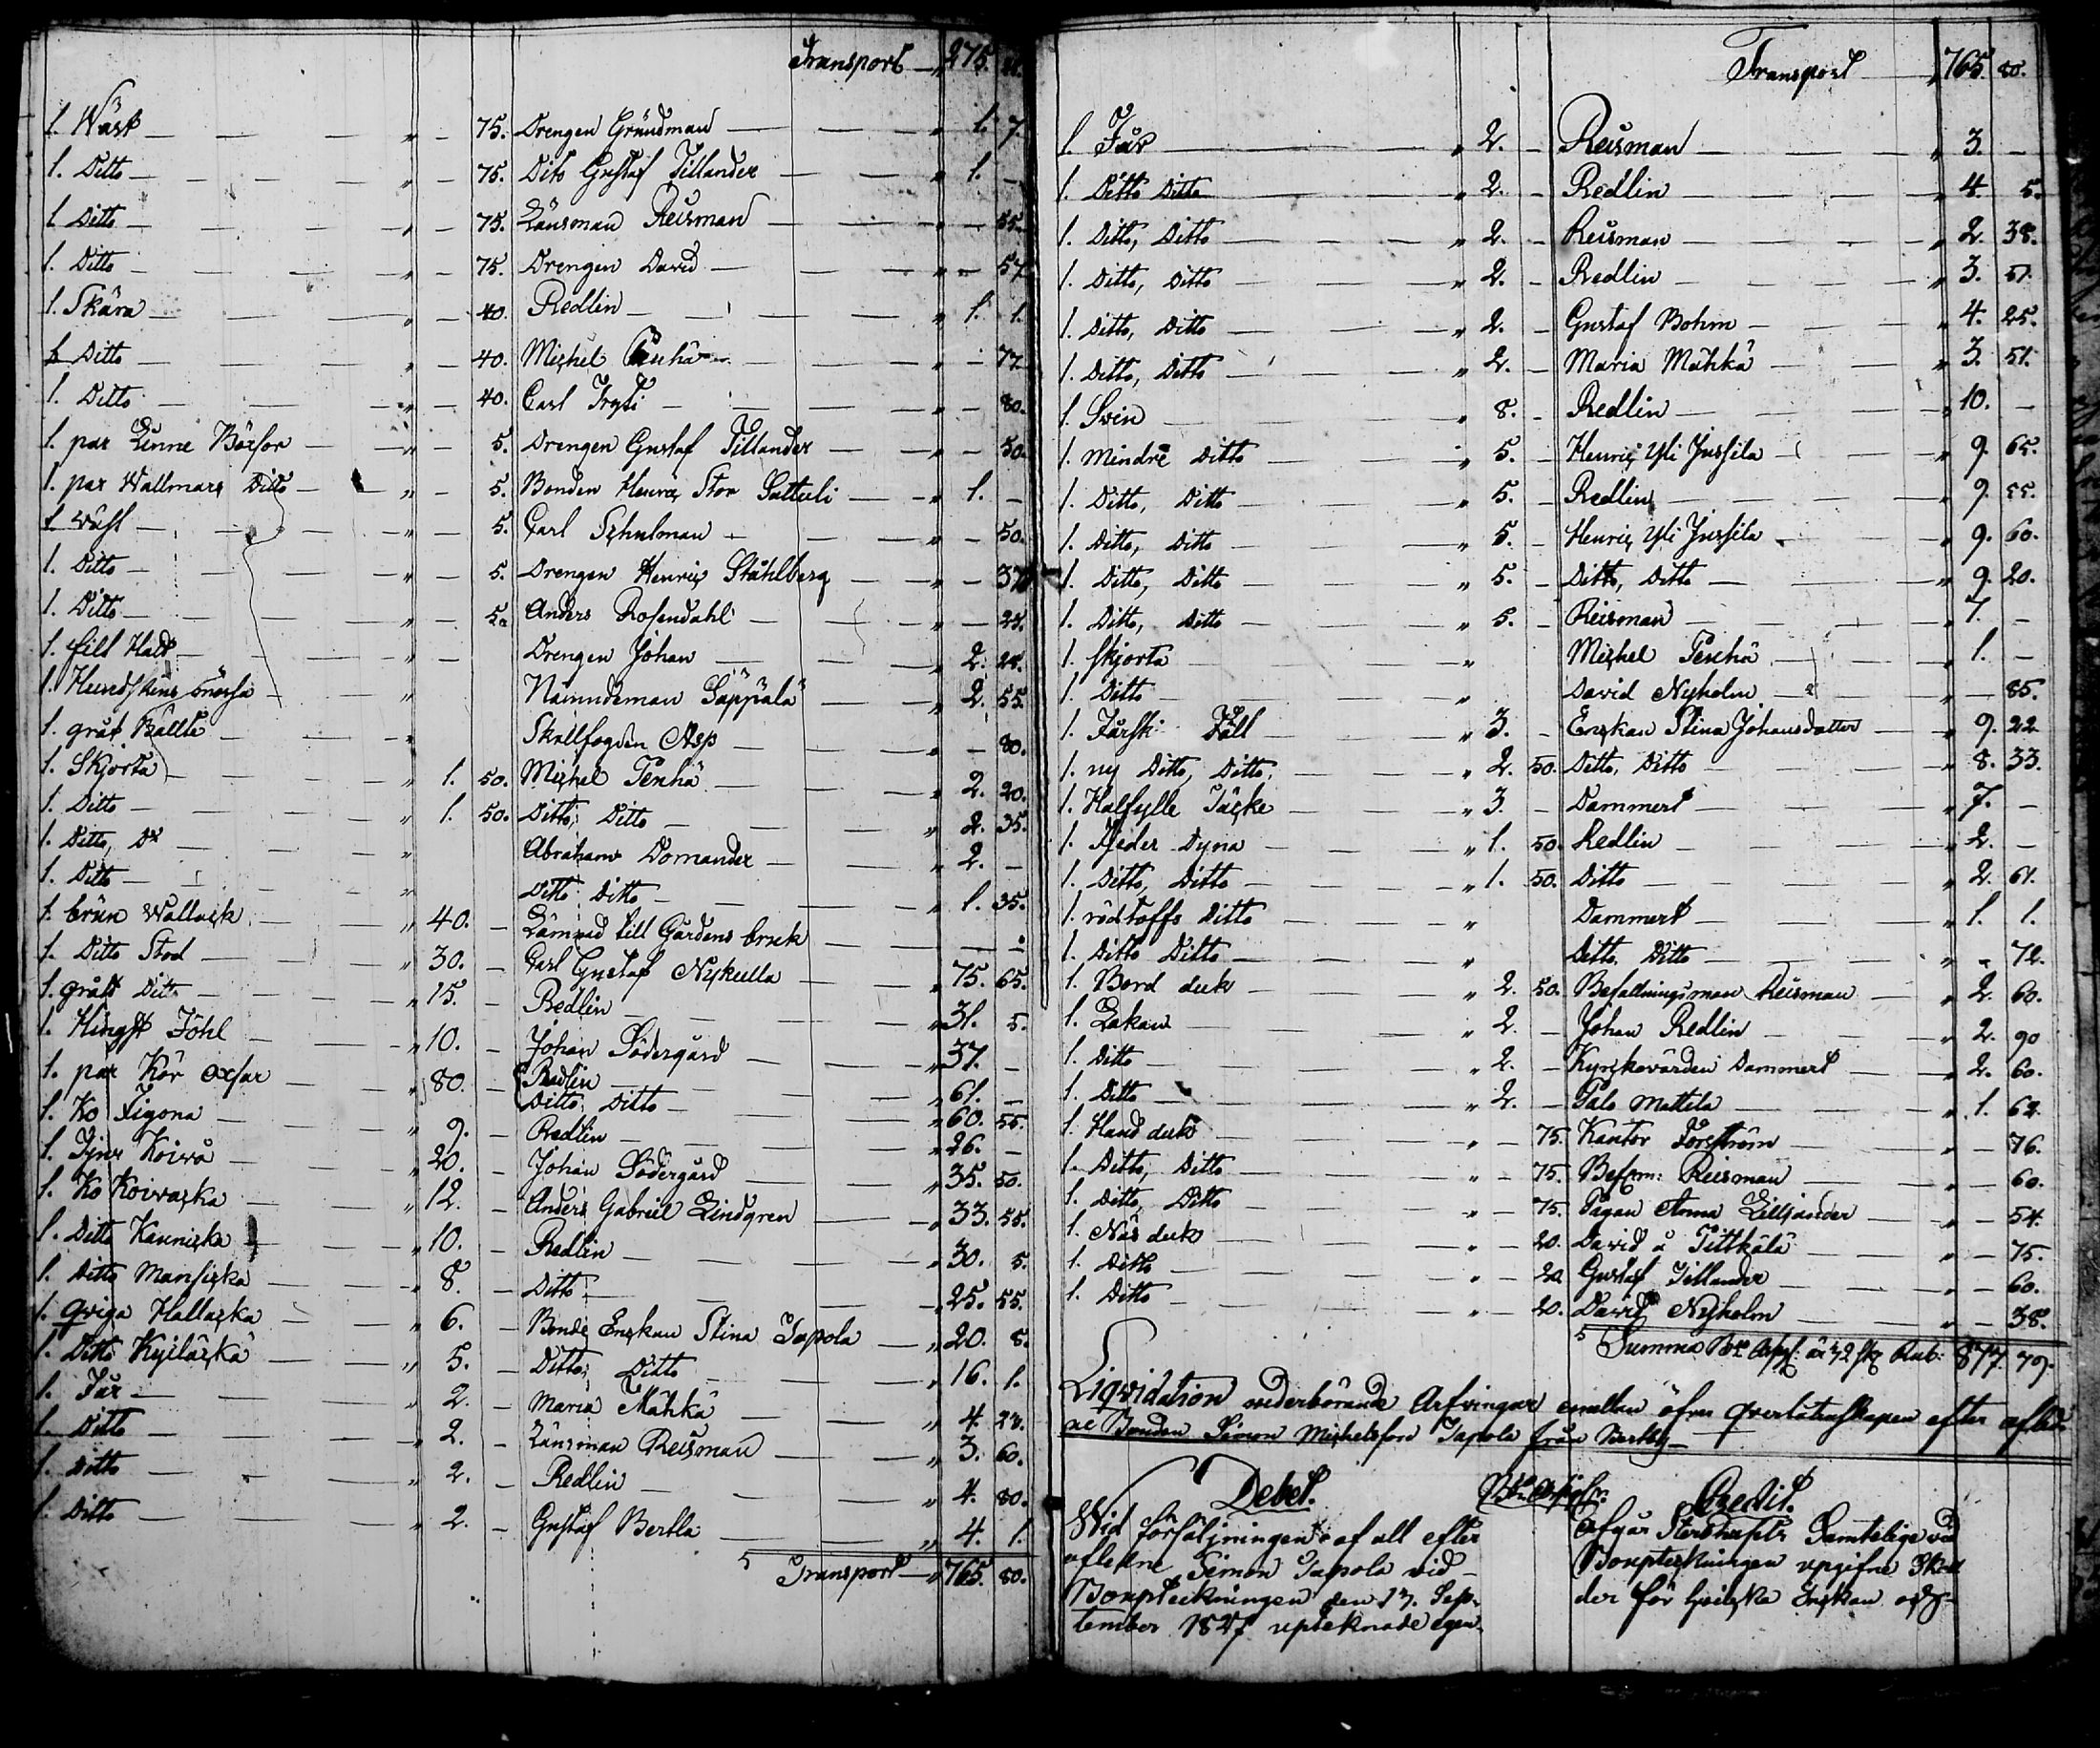 Transport 275.
1. Wäst 75. Drengen Grundman 1. 7.
1. Ditto 75. Dito Gustaf Tillander 1. -
1 Ditto 75. Länsman Reisman - 55.
1. Ditto 75. Drengen David - 57.
1. Skära 40. Redlin 1. 1.
1 Ditto 40. Michel - 77.
1. Ditto 40. Carl - 80.
1. par Linne Böxsor 5. Drengen Gustaf Tillander - 50.
1. par Wallmars Ditto 5. Bonden Henric Stor 1. -
1 5. Carl Schulman - 50.
1. Ditto 5. Drengen Henric Ståhlberg - 37
1. Ditto 5. Anders Rosendahl -
1. filt Hatt Drengen Johan 2.
1. Hundskins mössa Nämndeman Sappala 2. 55.
1. gråt Bällte Skallfogden Asp - 80.
1. Skjorta 1. 50. Michel Tenhä 2. 20.
1. Ditto 1. 50. Ditto, Ditto 2. 35.
1. Ditto, Do Abraham Domander 2. -
1. Ditto Ditto Ditto 1. 35.
1. brun Wallack 40. - Lämnad till Gårdens bruk - -
1. Ditto Stod 30. - Carl Gustaf Nykulla 75. 65.
1. grått Ditto 15. - Redlin 31. 5.
1. Hingst Föhl 10. - Johan Södergård 37. -
1. par Kör oxsar 80. - Redlin 61. -
Ditto Ditto 60. 55.
1. Ko Figona 9. - Redlin 26. -
1. Tjur Koivo 20. - Johan Södergård 35. 50.
1. Ko Koivacka 12. - Anders Gabriel Lindgren 33. 55.
1. Ditto Kaunicka 10. - Redlin 30. 5.
1. Ditto Mansicka 8. - Ditto 25. 55.
1. Qviga Hallacka 6. - Bonde Enckan Stina Iapola 20. 8.
1. Ditto Kyiläckä 5. - Ditto, Ditto 16. 1.
1. Får 2. - Maria Mähkä 4
1. Ditto 2. - Länsman Reisman 3. 60.
1. Ditto 2. - Redlin 4. 80.
1. Ditto 2. - Gustaf Bertla 4. 1.
Transport 765. 80.
Transport 765. 80.
1. Får 2. - Reisman 3. -
1. Ditto Ditto 2. - Redlin 4. 5.
1. Ditto, Ditto 2. - Reisman 2. 38.
1. Ditto, Ditto 2. - Redlin 3. 51.
1. Ditto, Ditto 2. - Gustaf Bohm 4. 25.
1. Ditto, Ditto 2. - Maria Mähkä 3. 51.
1. Svin 8. - Redlin 10. -
1. mindre Ditto 5. - Henric Yli Jussila 9. 65.
1. Ditto, Ditto 5. - Redlin 9. 55.
1. Ditto, Ditto 5. - Henric Yli Jussila 9. 60.
1. Ditto, Ditto 5. - Ditto, Ditto 9. 20.
1. Ditto, Ditto 5. - Reisman 7. -
1. Skjorta Michel Tenhä 1. -
1. Ditto David Nyholm - 85.
1. Fårsk. Fäll 3. - Enckan Stina Johansdotter 9. 22
1. ny Ditto, Ditto, 2. 50. Ditto, Ditto 8. 33.
1. Halfylle Täcke 3. - Dammert 7. -
1. Fjeder Dyna 1. 50. Redlin 2. -
1. Ditto, Ditto 1. 50. Ditto 2. 61.
1. rödtoffs Ditto Dammert 1. 1.
1. Ditto Ditto Ditto Ditto - 72.
1. Bord duk 2. 50. Befallningsman Reisman 2. 60.
1. Lakan 2. - Johan Redlin 2. 90
1. Ditto 2. - Kyrckovärden Dammert 2. 60.
1. Ditto 2. - Palo Mattila 1. 62.
1. Hand duk 75. Kantor Forsström - 76.
1. Ditto, Ditto 75. Befrm: Reisman - 60.
1. Ditto, Ditto 75. Pigan Anna Lilljander - 54.
1. Näs duk 20. David å Tittkälä - 75.
1. Ditto 20. Gustaf Tillander - 60.
1. Ditto 20. David Nyholm - 38.
Summa Bco Assg: à 72 sk Rub: 877 79.
Liqvidation wederbörande Arfvingar emellan öfver qvarlåtenskapen efter afled-
ne Bonden Simon Michelsson Iapola från Bertby
Debet.
Wid försäljningen af all efter
aflidne Simon Iapola vid
Boupteckningen den 17. Sep-
tember 1827 uptecknade egen-
Credit.
Afgår Sterbhusets Samtelige vid
Boupteckningen upgifne Skul
der för hvilka Enckan och